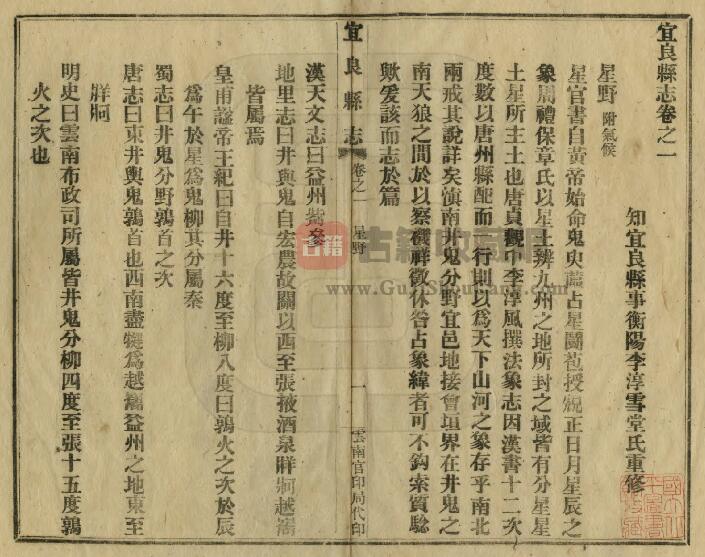 宜良縣志卷之一
知宜良縣事衡陽李淳雪堂氏重修
星野 附氣候
星官書自黃帝始命鬼臾蓲占星鬬苞授規正日月星辰之
象周禮保章氏以星土辨九州之地所封之域皆有分星星
土星所主土也唐貞觀中李淳風撰法象志因漢書十二次
度數以唐州縣配而一行則以為天下山河之象存乎南北
兩戒其說詳矣滇南井鬼分野宜邑地接會垣界在井鬼之
南天狼之間於以察禨祥徵休咎占象緯者可不鈎索質騐
歟爰該而志於篇
宜良縣志 卷之一 星野 一 雲南官印局代印
漢天文志曰益州觜參
地里志曰井與鬼自宏農故關以西至張掖酒泉牂牁越嶲
皆屬焉
皇甫謐帝王紀曰自井十六度至柳八度曰鶉火之次於辰
為午於星為鬼柳其分屬秦
蜀志曰井鬼分野鶉首之次
唐志曰東井輿鬼鶉首也西南盡犍為越嶲益州之地東至
牂牁
明史曰雲南布政司所屬皆井鬼分柳四度至張十五度鶉
火之次也
古籍
www.GujiShuFang.com